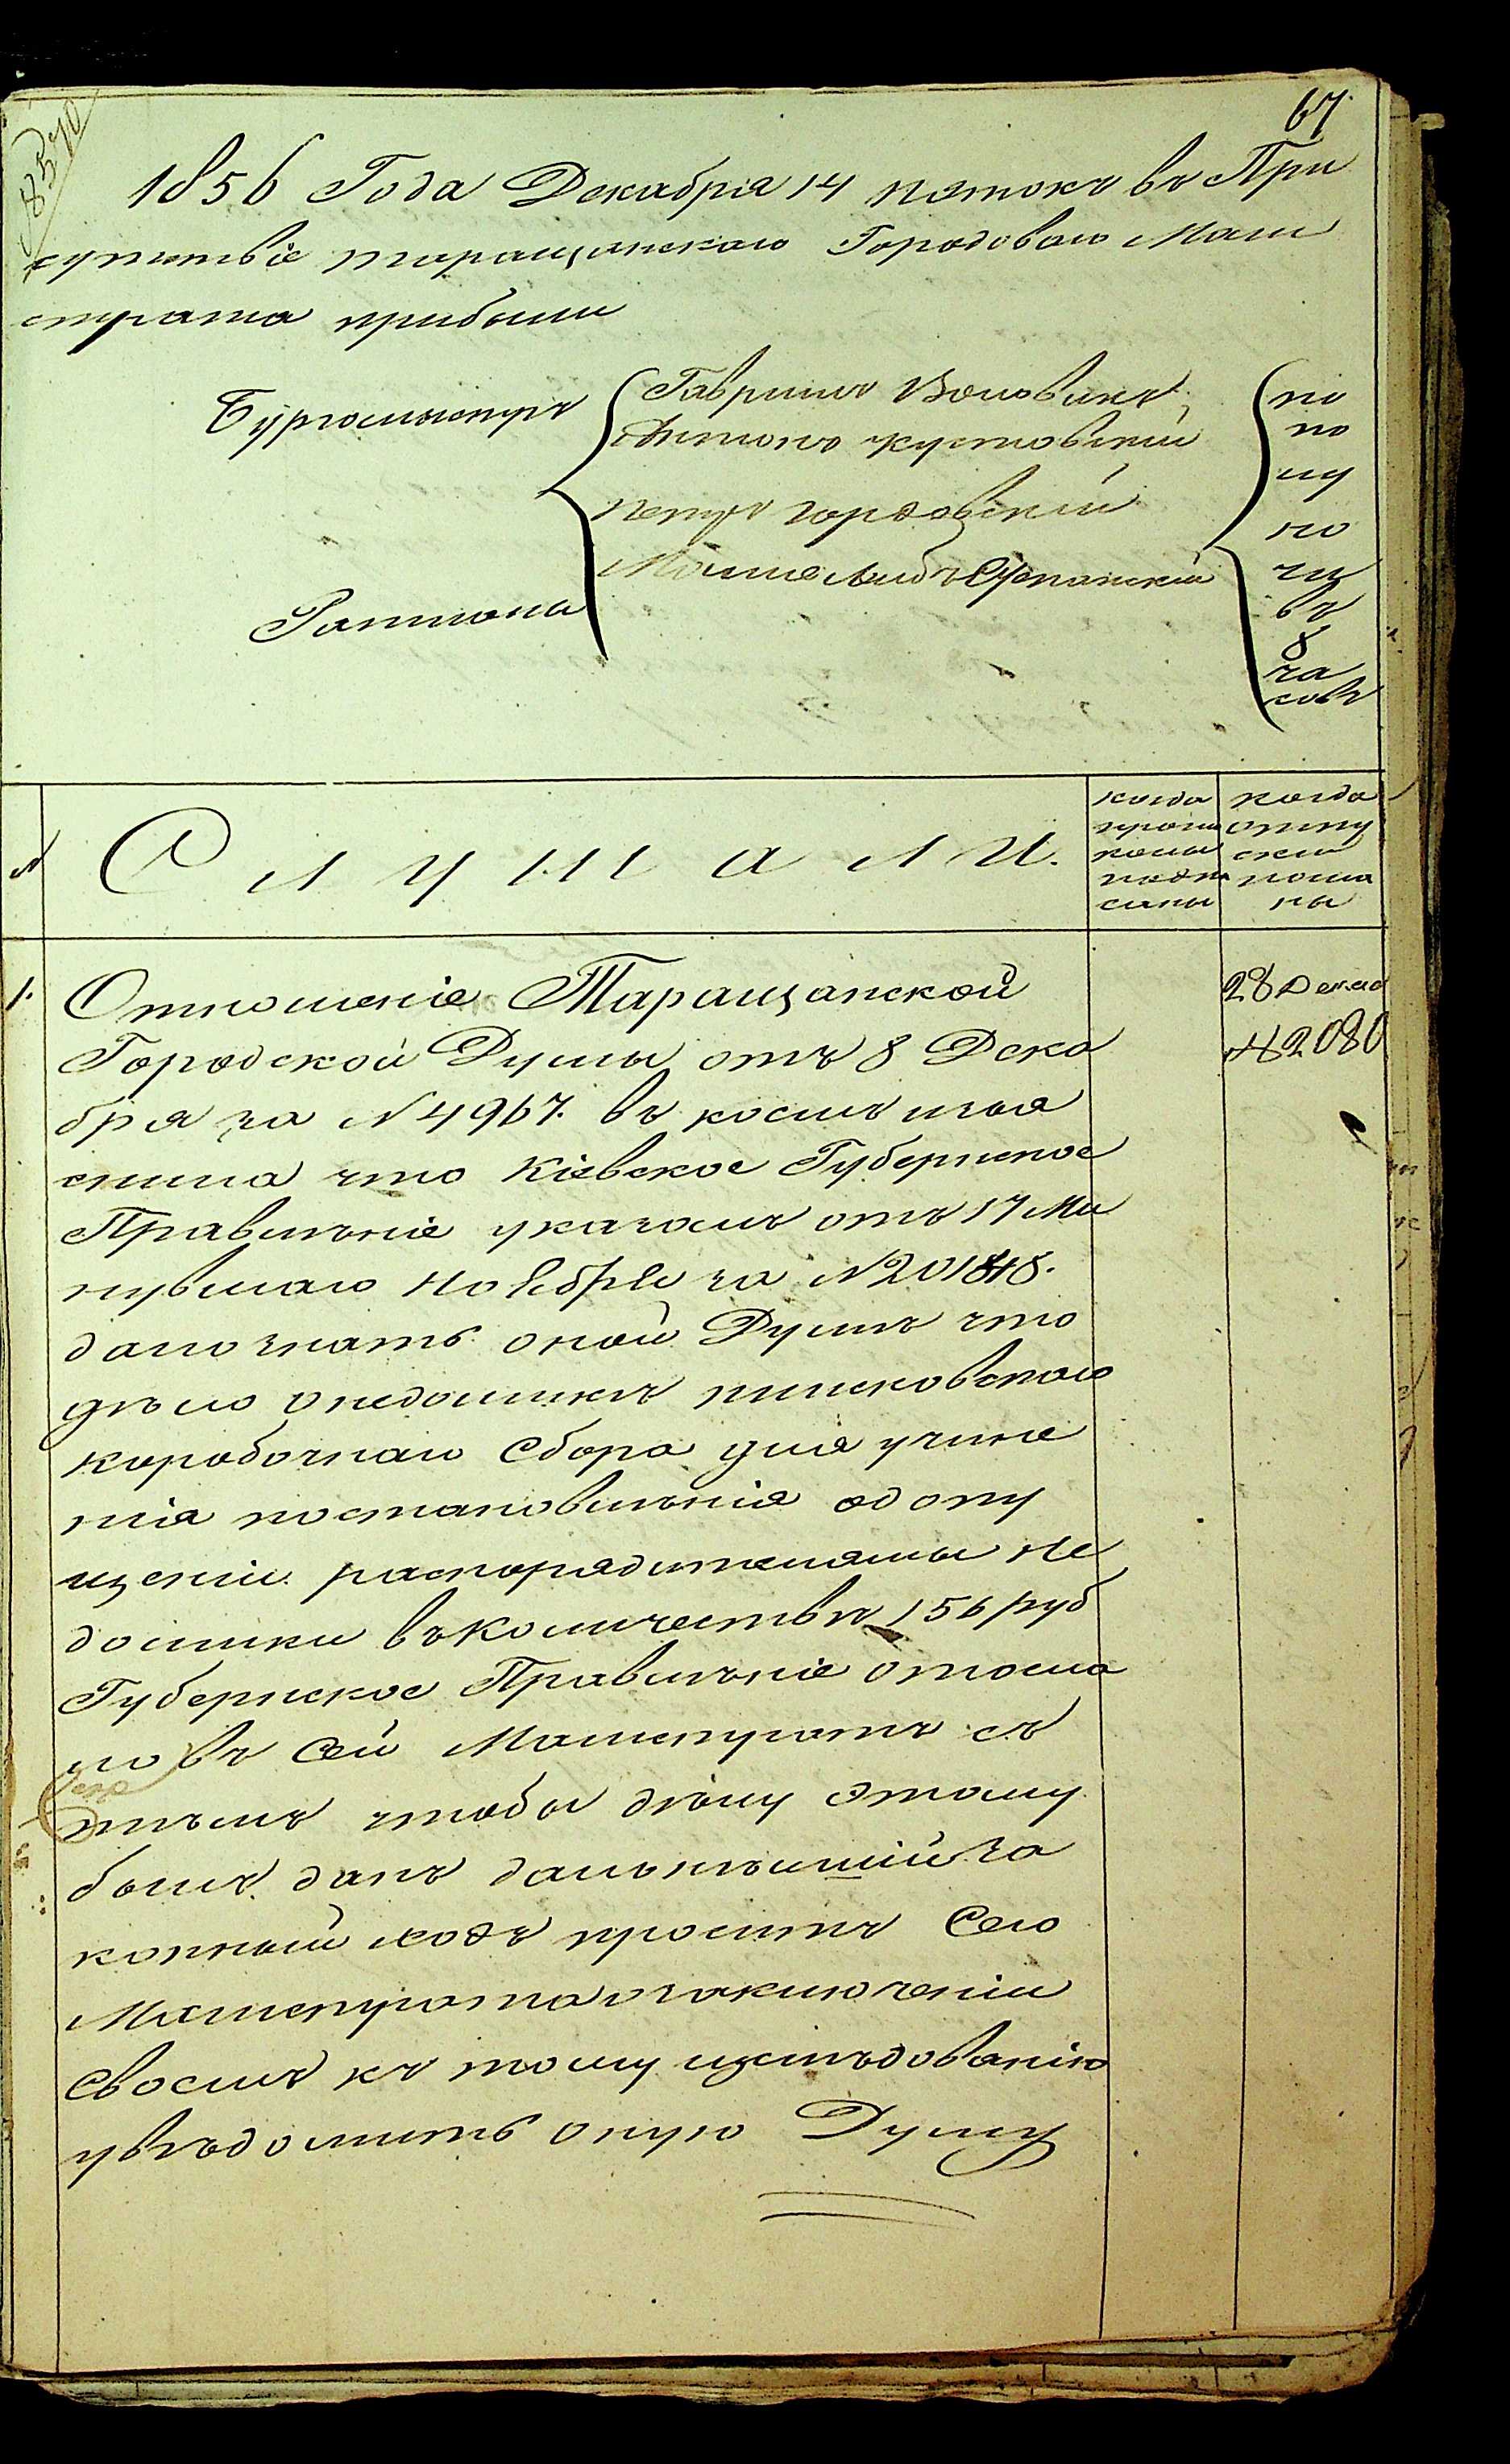 67
1856 Года Декабря 14 пятокъ въ При
сутствіе таращанского Городоваго Маги
страта прибыли
Бургомыстръ
Гаврилъ Воловикъ
Антонъ
Петръ
Мошко Лейбъ
Ратмана
по
по
лу
но
чи
въ
8
ча
совъ
№
Слушали.
когда
прото
колы
подпи
саны
когда
отпу
ски
посла
ны
1.
Отношеніе Таращанской
28 Декаб
№ 2080
Городской Думы отъ 8 Дека
бря за № 4967. въ коемъ изъя
снила что Кіевское Губернское
Правленіе указомъ отъ 17 Ми
нувшаго Ноября за № 201848.
дало знать оной Думѣ что
дѣло о недоимкѣ пинсковского
коробочнаго Сбора для учине
нія постановленія о допу
щеніи распорядителямы не
доимки въ количествѣ 156 руб
Губернское Правленіе отосла
ло въ Сей Магистратъ съ
тѣмъ чтобы дѣлу этому
былъ данъ дальнѣйшій за
конный ходъ проситъ Сего
Магистрата о заключеніи
Своемъ къ тому изслѣдованію
увѣдомить оную Думу